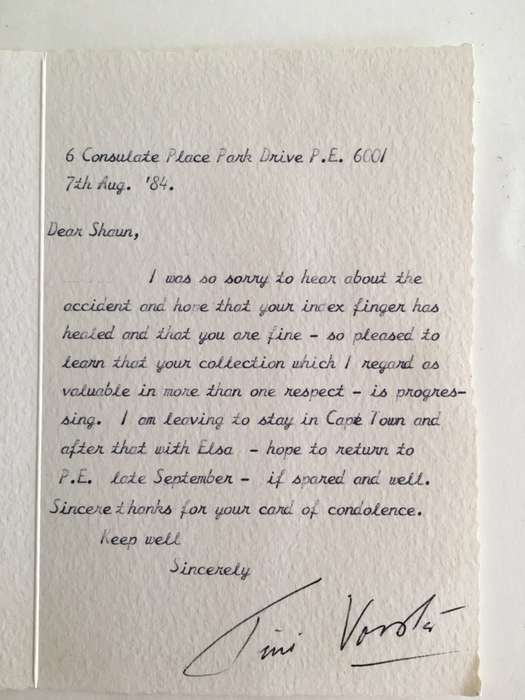 6 Consulate Place Park Drive P.E. 6001
7th Aug. '84.
Dear Shaun,
I was so sorry to hear about the
accident and hope that your index finger has
healed and that you are fine – so pleased to
learn that your collection which I regard as
valuable in more than one respect – is progres-
sing. I am leaving to stay in Cape Town and
after that with Elsa – hope to return to
P.E. late September – if spared and well.
Sincere thanks for your card of condolence.
Keep well
Sincerely
Tini Vorster